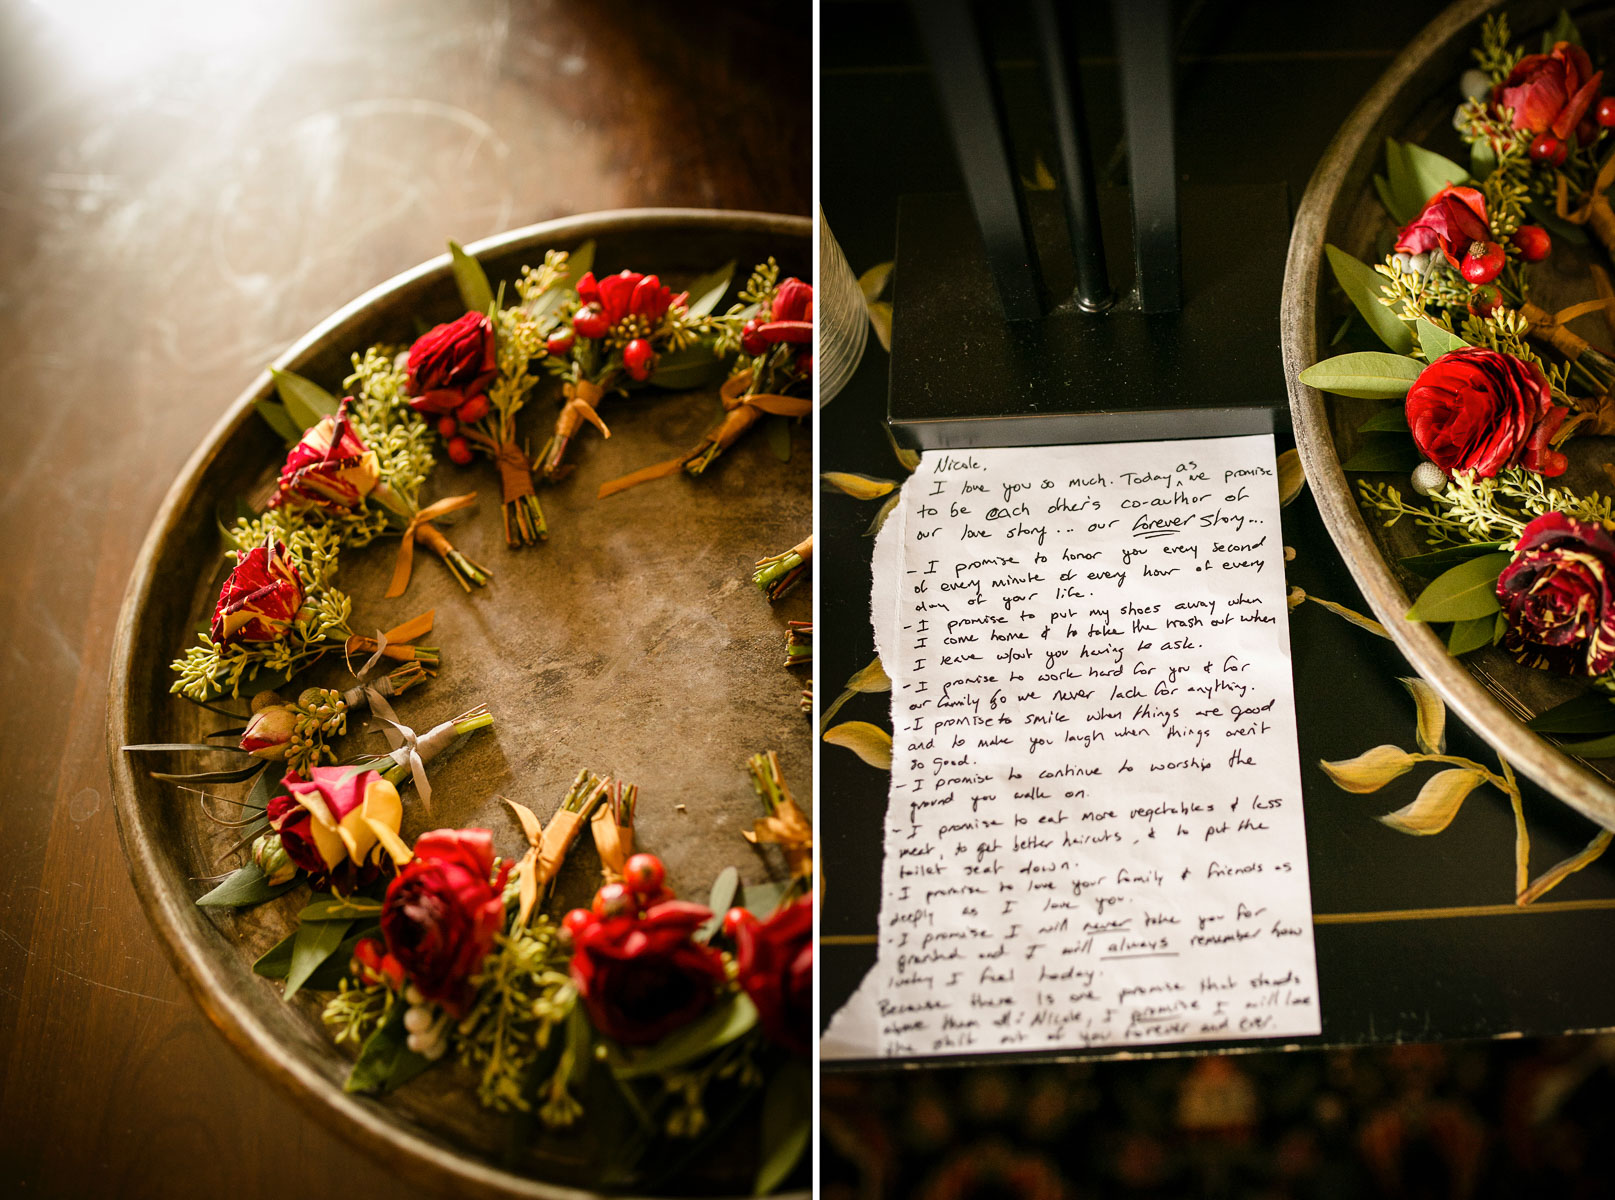 Nicole,
I love you so much. Today as we promise
to be each other's co-author of
our love story... our forever story...
- I promise to honor you every second
of every minute of every hour of every
day of your life.
- I promise to put my shoes away when
I come home & to take the trash out when
I leave w/out you having to ask.
- I promise to work hard for you & for
our family so we never lack for anything.
- I promise to smile when things are good
and to make you laugh when things aren't
so good.
- I promise to continue to worship the
ground you walk on.
- I promise to eat more vegetables & less
meat, to get better haircuts, & to put the
toilet seat down.
- I promise to love your family & friends as
deeply as I love you.
- I promise I will never take you for
granted and I will always remember how
lucky I feel today.
Because there is one promise that stands
above them all: Nicole, I promise I will love
the shit out of you forever and ever.